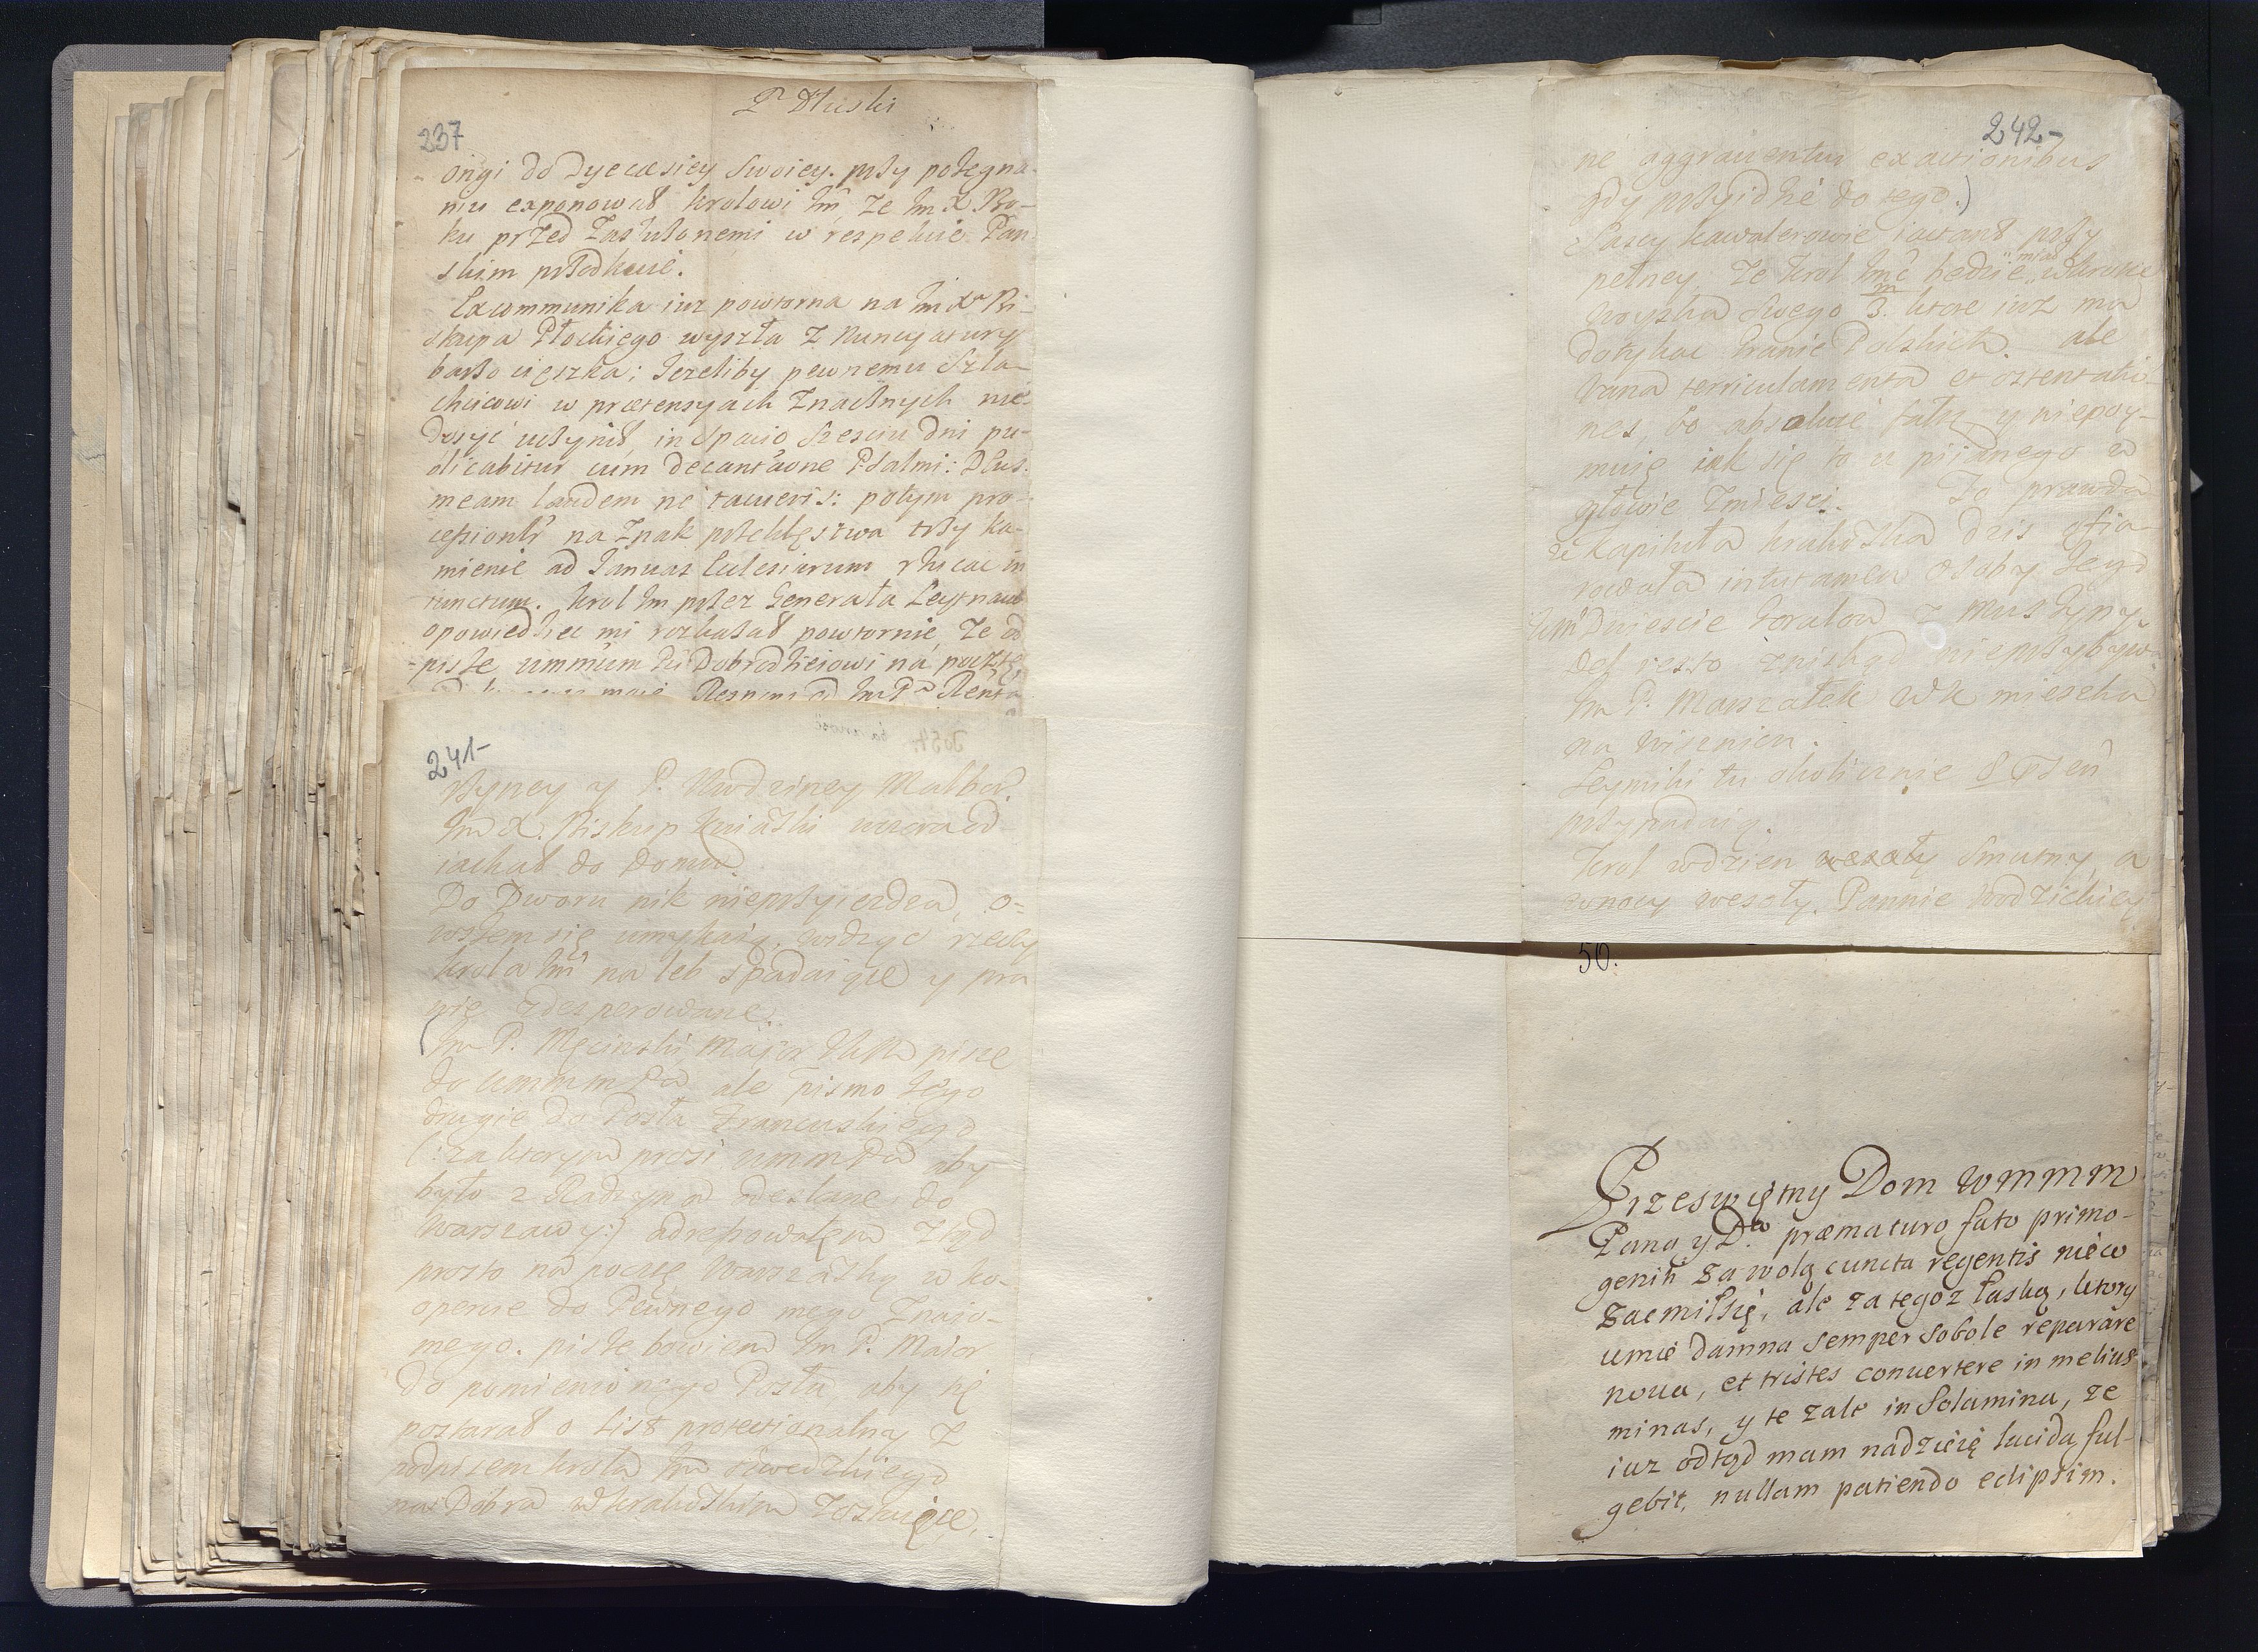 Pn Dłuski
237
ongi do Dyecesiey Swoiey. przy pożegna-
niu exponował krolowi Jm, ze Jm X Bo-
ku przed Zasłużonemi w respekcie Pan
skim
Excommunika iuz powtorna na Jm Xa Bi-
skupa Płockiego wyszła z Nuncyatury
barzo cięszka; Jezeliby pewnemu Szla-
chcicowi w prætensyach Znacznych nie-
dosyć uczynił, in Spatio Szesciu dni pu-
blicabitur cum decantaone Psalmi: Deus
meam laudem ne tacueris: potym pro-
cessionlr na Znak przeklęstwa trzy ka-
mienie ad Januas Ecclesiarum rzucac in
punctum. krol Jm przez Generała Leytnant
opowiedziec mi rozkazał powtornie, Ze od
piszę ummum Pu Dobrodzieiowi na pocztę
Respons od Jm Pa
241-
y P.
Jm X. Biskup Kuiaski wczora od
iachał do domu
Do Dworu nik nieprzyiezdza, o-
wszem się umykaią, widząc rzeczy
krola Jmci na łeb spadaiące y pra
wie zdesperowane.
Jm P. Męcinski Major pisze
do ummm Pa ale pismo Jego
drugie do Posła Francuskiego
(: za ktorym prosi ummm Pa aby
było z Radzyna odesłane do
Warszawy:) adresowałem ztąd
prosto na pocztę Warszaską w ko-
opercie do Pewnego mego Znaio-
mego. pisze bowiem Jm P. Maior
do pomienionego Posła, aby się
postarał o List protectionalny Z
podpisem krola Jm Szwedzkiego
na Dobra w krakoskim
242-
ne aggrauentur exactionibus
gdy przyidzie do tego.)
Sascy kawalerowie iactant przy
pełney, Ze krol Jmc bedzie miał wkrotce
woyska Swego 3/m. ktore iuz ma
dotykac Granic Polskich. ale
vana terriculamenta et ostentatio
nes, bo absolute fałsz y niepoy-
muię iak się to u piianego w
głowie zmiesci. To prawda
ze Kapituła krakoska dzis ofia-
rowała intutamen osoby Jego
Jm Dwiescie toralow z Muszyny
Del resto znikąd nieprzybyw
Jm P. Marszałek WK mieszka
na Wiszniczu.
Seymiki tu okoliczne 8
przypadaią.
Krol wdzien wesoły Smutny, a
wnocy wesoły. Pannie Wodzickiey
50.
Przeswiętny Dom Wmmm
Pana y Da præmaturo fato primo-
genih Za wolą cuncta regentis niew
Zacmiłsię, ale za tegoz łaską, ktory
umie damna semper sobole reparare
noua, et tristes conuertere in melius
minas, y te zale in Solamina, ze
iuz odtąd mam nadzieię lucida ful-
gebit, nullam patiendo eclipsim.